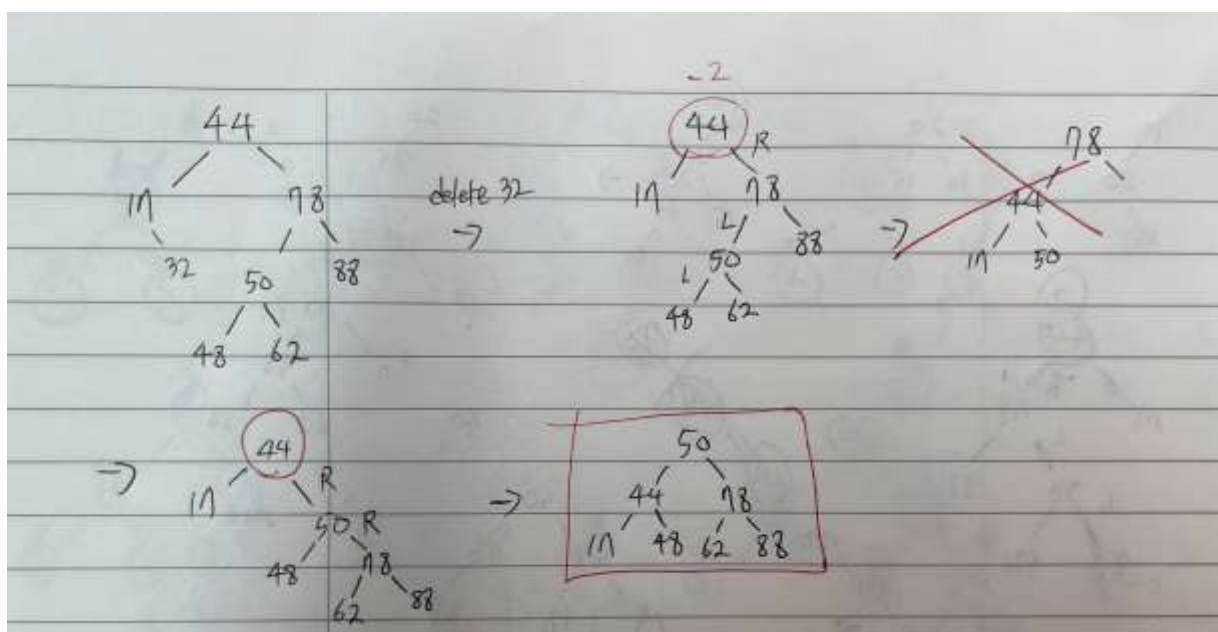 44
17 78
32 50 88
48 62
delete 32
→
-2
44 R
17 78
L
50 88
L
48 62
→
78
44
17 50
→
44
17 R
50 R
48 78
62 88
→
50
44 78
17 48 62 88